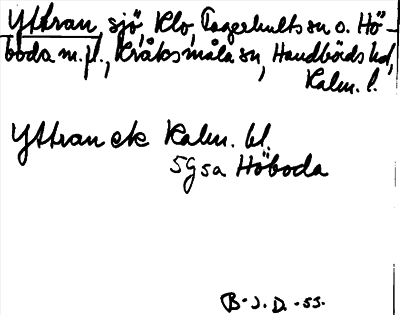 Yttran, sjö, Klo, Fagerhults sn o. Hö-
boda m.fl., Kråksmåla sn, Handbörds hd,
Kalm. l.
Yttran ek Kalm. bl.
5G sa Höboda
B.J.D. -55.